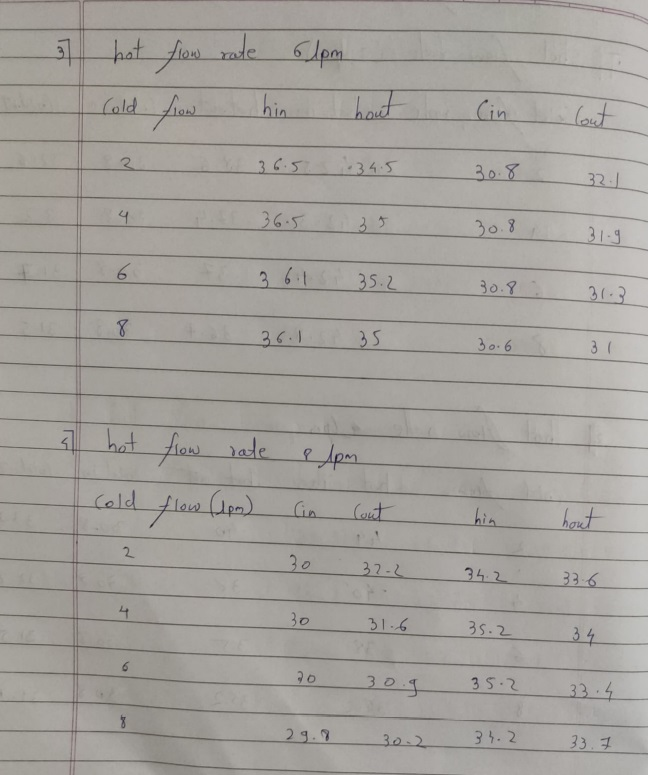 3] hot flow rate 6 lpm
Cold flow hin hout Cin Cout
2 36.5 34.5 30.8 32.1
4 36.5 35 30.8 31.9
6 36.1 35.2 30.8 31.3
8 36.1 35 30.6 31
4] hot flow rate 8 lpm
Cold flow (lpm) Cin Cout hin hout
2 30 32.2 34.2 33.6
4 30 31.6 35.2 34
6 30 30.9 35.2 33.4
8 29.8 30.2 34.2 33.7